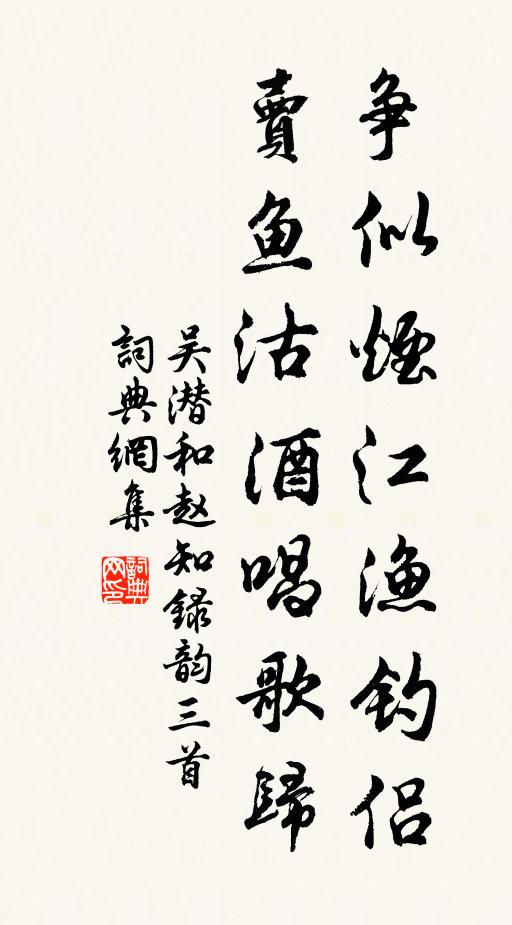 争似煙江漁钓侣
賣鱼沽酒唱歌歸
吴潜和赵知録韵三首
詞典網集
詞典网印